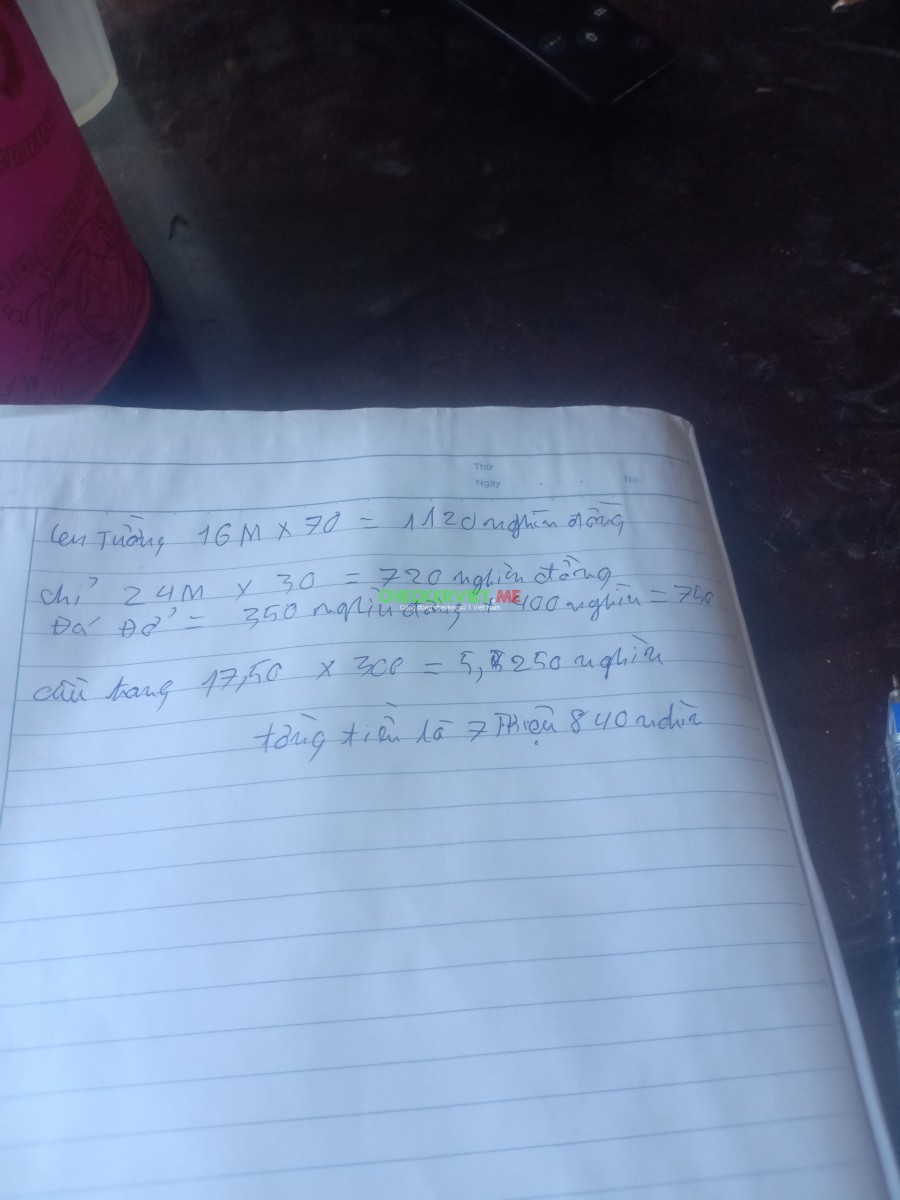 Thứ
Ngày
No.
Len Tường 16M x 70 = 1120 nghìn đồng
chỉ 24M x 30 = 720 nghìn đồng
CHECKERVIET.ME
Đá Đỏ = 350 nghìn đồng 400 nghìn = 750
cầu thang 17,50 x 300 = 5,250 nghìn
tổng tiền là 7 Triệu 840 nghìn